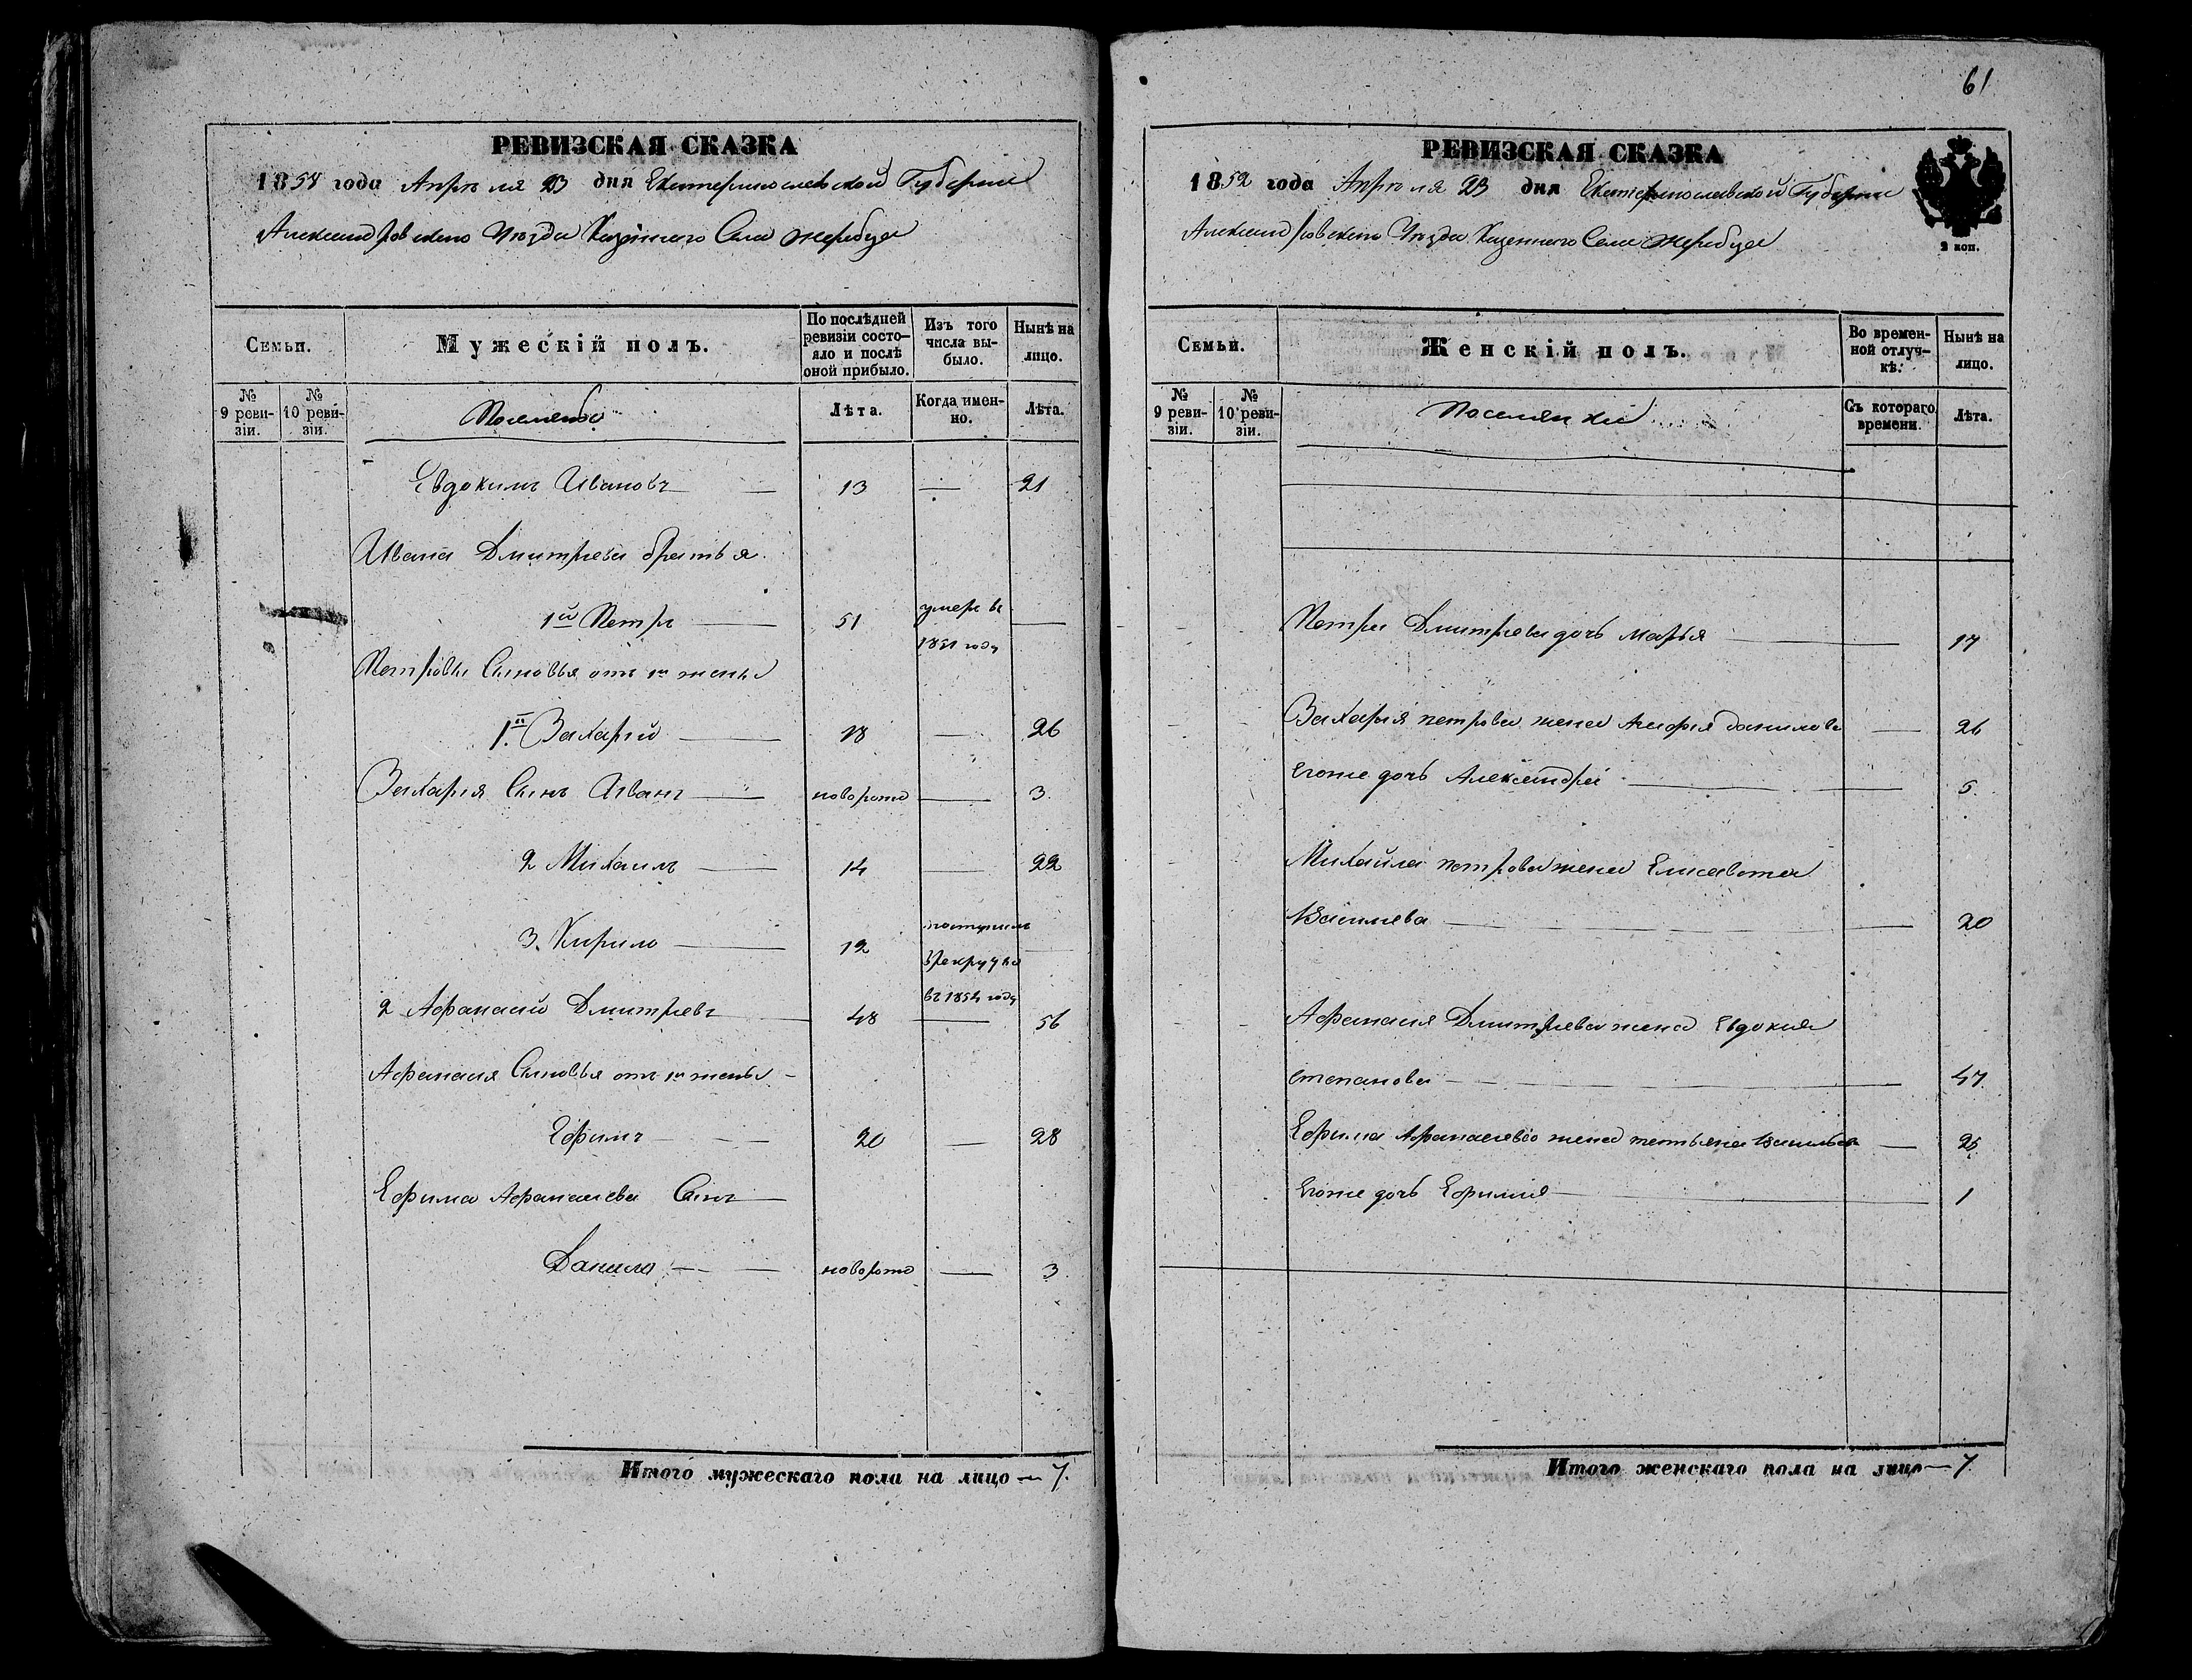 РЕВИЗСКАЯ СКАЗКА
1858 года Апреля 23 дня Екатеринославской Губернии
Александровского Уезда Казенного Села Жеребца
Семьи.
Мужескій полъ.
По послѣдней ревизіи состо-
яло и послѣ
оной прибыло.
Изъ того
числа вы-
было.
Нынѣ на
лицо.
№
9 реви-
зіи.
№
10 реви-
зіи.
Поселяне
Лѣта.
Когда имен-
но.
Лѣта.
Евдокимъ Ивановъ 13 — 21
Ивана Дмитриева братья
1й Петръ 51 умеръ въ
1851 году
Петровы Сыновья отъ 1й жены
1й Захарій 18 — 26
Захария Сынъ Иванъ новорожд — 3.
2 Михаилъ 14 — 22
3. Кирило 12 поступилъ
в рекруты
въ 1854 году
2 Афанасий Дмитриевъ 48 — 56
Афанасия Сыновья отъ 1й жены
Ефимъ 20 — 28
Ефима Афанасиева Сынъ
Данило новорожд — 3
Итого мужескаго пола на лицо — 7.
61
РЕВИЗСКАЯ СКАЗКА
1858 года Апреля 23 дня Екатеринославской Губернии
Александровского Уезда Казенного Села Жеребца
2 коп.
Семьи.
Женскій полъ.
Во времен-
ной отлуч-
кѣ.
Нынѣ на
лицо.
№
9 реви-
зіи.
№
10 реви-
зіи.
Поселянки
Съ котораго
времени.
Лѣта.
Петра Дмитриева дочь Марья 17
Захарыя петрова жена Агафия данилова — 26
Егоже дочь Александра 5.
Михайла петрова жена Елисавета
Василиева 20
Афанасия Дмитриева жена Евдокия
степанова 47
Ефима Афанасиева жена татьяна Васильева — 25
Егоже дочь Ефимия 1
Итого женскаго пола на лицо — 7.